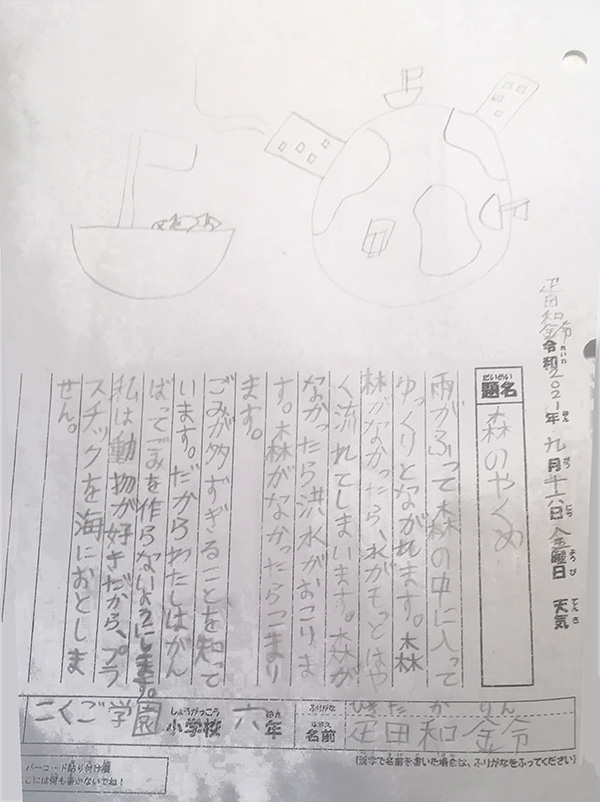 疋田和鈴
令和2021年九月十六日金曜日 天気
れいわ ねん がつ にち ようび てんき
だいめい
題名 森のやくめ
雨がふって森の中に入って
ゆっくりとながれます。森
林がなかったら、水がもっとはや
く流れてしまいます。森が
なかったら洪水がおこりま
す。森がなかったらこまり
ます。
ごみが多すぎることを知って
います。だからわたしはがん
ばってごみを作らないようにします。
私は動物が好きだから、プラ
スチックを海におとしま
せん。
こくご学園 小学校 六年
しょうがっこう ねん
ふりがな ひきた かりん
なまえ
名前 疋田和鈴
(漢字で名前をおかいた場合は、ふりがなをふってください)
バーコード貼り付け欄
ここには何も書かないでね!